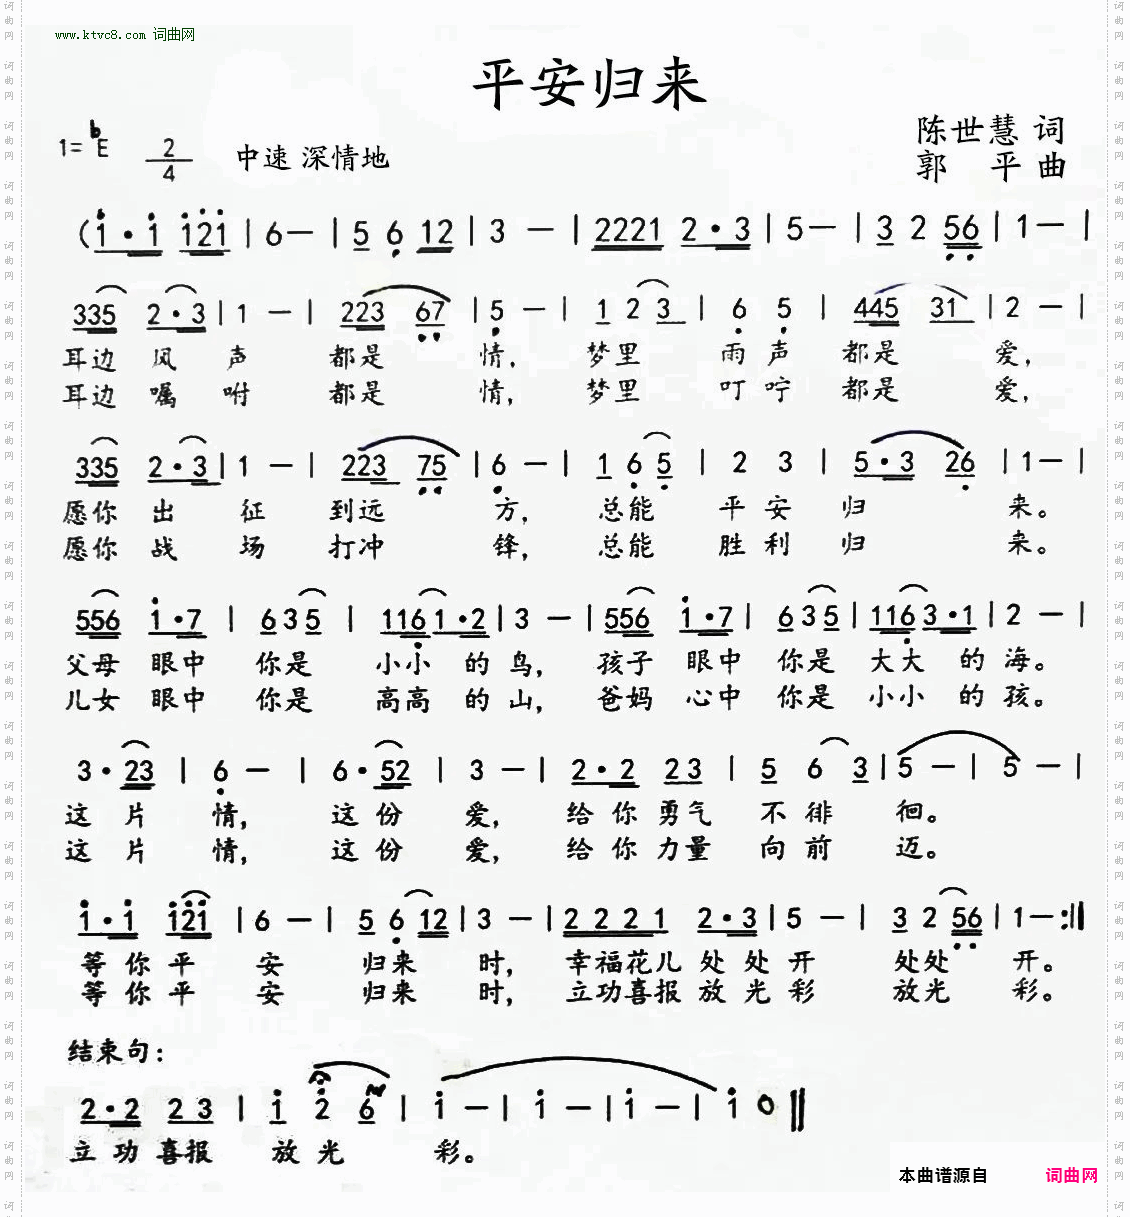 www.ktvc8.com 词曲网
平安归来
1=bE 2/4 中速 深情地
陈世慧 词
郭 平 曲
(1·1 121 | 6— | 5 6 12 | 3 — | 2221 2·3 | 5— | 3 2 56 | 1— |
335 2·3 | 1 — | 223 67 | 5 — | 1 2 3 | 6 5 | 445 31 | 2 — |
耳边 风 声 都是 情, 梦里 雨 声 都是 爱,
耳边 嘱 咐 都是 情, 梦里 叮 咛 都是 爱,
335 2·3 | 1 — | 223 75 | 6 — | 1 6 5 | 2 3 | 5·3 26 | 1— |
愿你 出 征 到远 方, 总能 平 安 归 来。
愿你 战 场 打冲 锋, 总能 胜 利 归 来。
556 1·7 | 6 3 5 | 116 1·2 | 3 — | 556 1·7 | 6 3 5 | 116 3·1 | 2 — |
父母 眼中 你是 小小 的 鸟, 孩子 眼中 你是 大大 的 海。
儿女 眼中 你是 高高 的 山, 爸妈 心中 你是 小小 的 孩。
3·23 | 6 — | 6·52 | 3 — | 2·2 23 | 5 6 3 | 5 — | 5 — |
这 片 情, 这 份 爱, 给 你 勇气 不 徘 徊。
这 片 情, 这 份 爱, 给 你 力量 向 前 迈。
1·1 121 | 6 — | 5 6 12 | 3 — | 2 2 2 1 2·3 | 5 — | 3 2 56 | 1—:||
等 你 平 安 归来 时, 幸福花儿 处 处 开 处处 开。
等 你 平 安 归来 时, 立功喜报 放 光 彩 放光 彩。
结束句：
2·2 23 | 1 2 6 | 1 — | 1 — | 1 — | 1 0 ||
立 功 喜报 放 光 彩。
本曲谱源自 词曲网